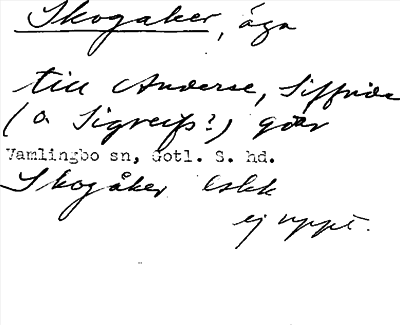 Skogaker, äga
till Anderse, Siffride
(o Sigreifs?) gdar
Vamlingbo sn, Gotl. S. hd.
Skogåker Eskk
ej uppt.